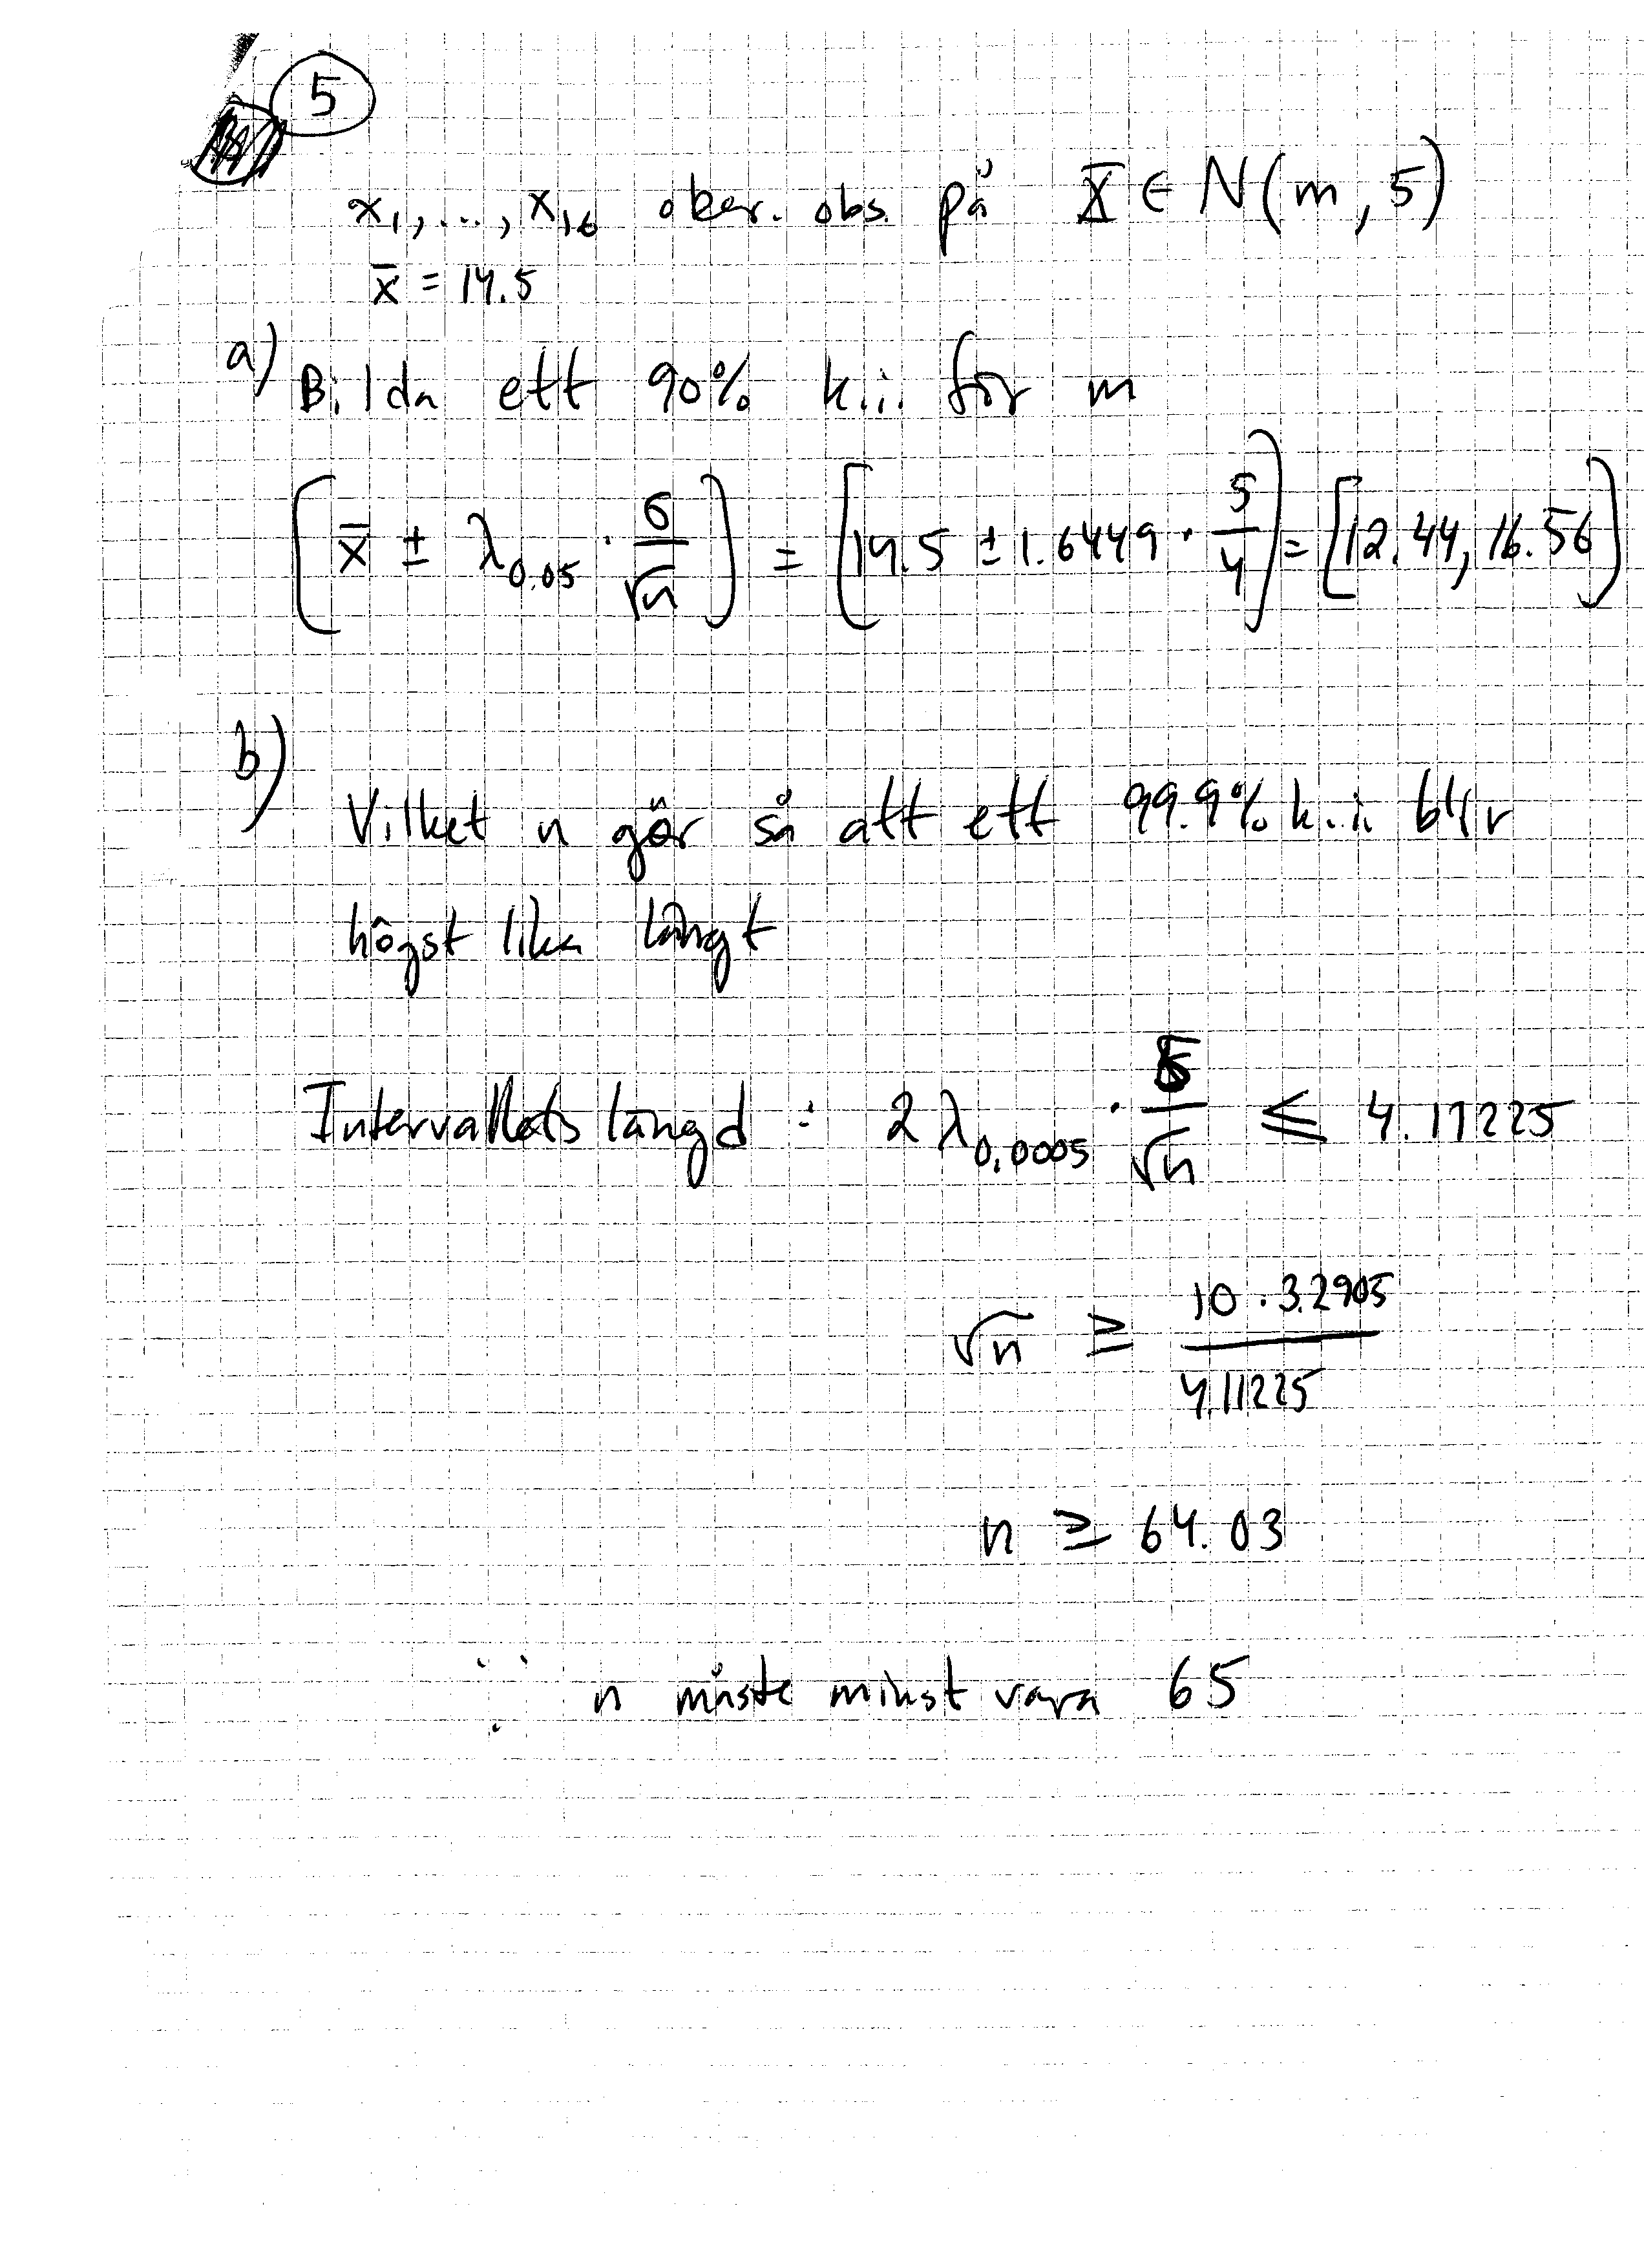 5
x₁,...,x₁₆ ober. obs. på X ∈ N(m,5)
x̄ = 14.5
a) Bilda ett 90% k.i. för m
[x̄ ± λ₀.₀₅ · σ/√n] = [14.5 ± 1.6449 · 5/4] = [12.44, 16.56]
b) Vilket n gör så att ett 99.9% k.i. blir
högst lika långt
Intervallets längd : 2 λ₀.₀₀₀₅ · 5/√n ≤ 4.11225
√n ≥ 10 · 3.2905/4.11225
n ≥ 64.03
∵ n måste minst vara 65